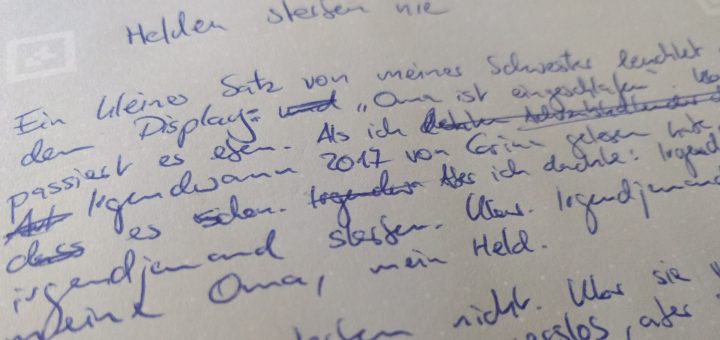 Helden sterben nie
Ein kleiner Satz von meiner Schwester leuchtet
dem Display: und „Oma ist eingeschlafen".
passiert es eben. Als ich
Irgendwann 2017 von gelesen hatte
dass es schon. Aber ich dachte: Irgend
irgendjemand sterben. Klar. Irgendjemand
meine Oma, mein Held.
nicht. Klar sie
aber